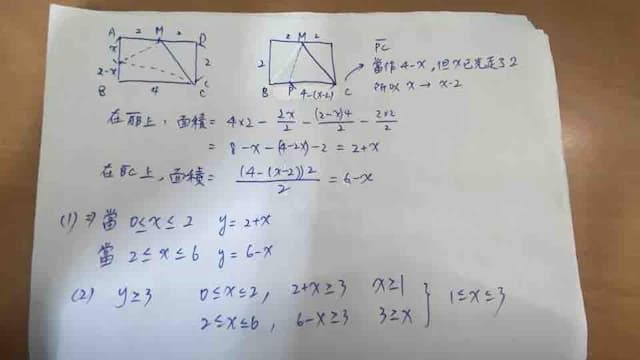 A 2 M 2 D
x
2-x 2
B 4 C
2 M 2
2
B P 4-(x-2) C
PC
當作 4-x, 但x已先走了2
所以 x → x-2
在AB上, 面積 = 4x2 - 2x/2 - (2-x)4/2 - 2x2/2
= 8-x-(4-2x)-2 = 2+x
在BC上, 面積 = (4-(x-2))2/2 = 6-x
(1) ⇒ 當 0≤x≤2 y=2+x
當 2≤x≤6 y=6-x
(2) y≥3 0≤x≤2, 2+x≥3 x≥1
2≤x≤6, 6-x≥3 3≥x } 1≤x≤3